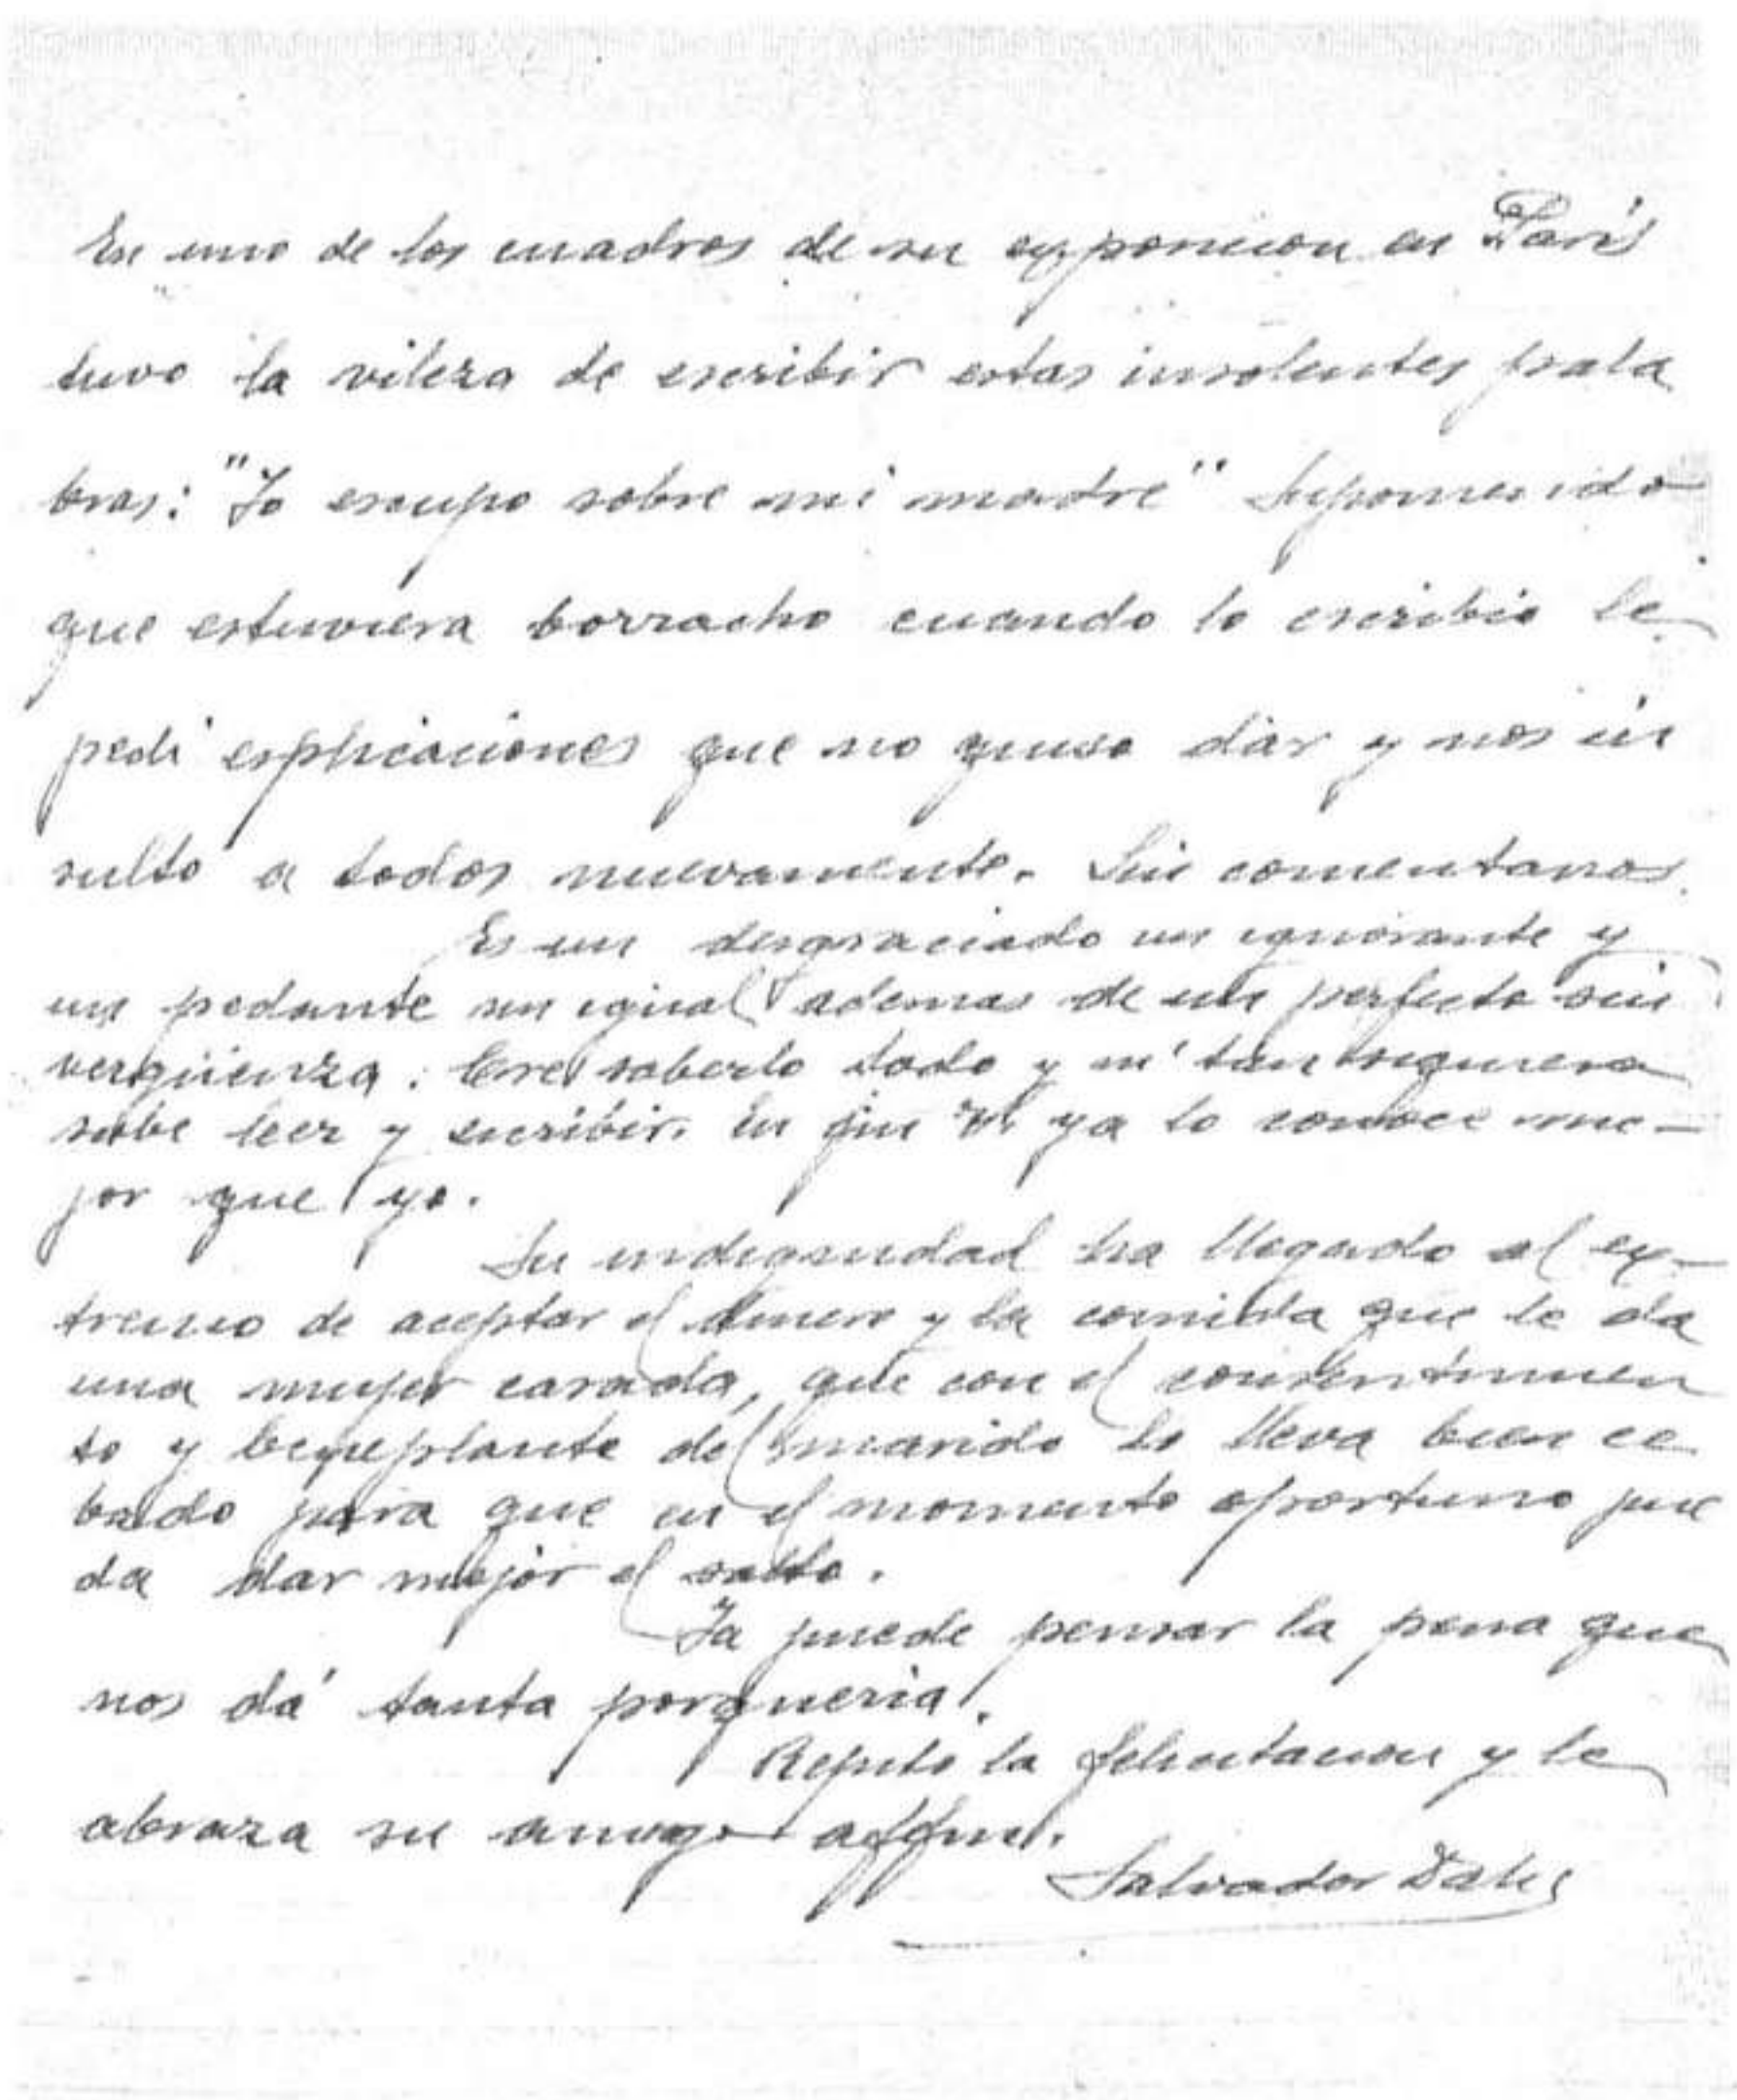 En uno de los cuadros de su exposicion en París
tuvo la vileza de escribir estas insolentes pala
bras: "Yo escupo sobre mi madre" Suponiendo
que estuviera borracho cuando lo escribió le
pedi esplicaciones que no quiso dar y nos in
sultó a todos nuevamente. Sin comentarios.
Es un desgraciado un ignorante y
un pedante sin igual ademas de un perfecto sin
vergüenza. Cree saberlo todo y ni tan siquiera
sabe leer y escribir. En fin V. ya lo conoce me-
jor que yo.
Su indignidad ha llegado al ex-
tremo de aceptar el dinero y la comida que le da
una mujer casada, que con el consentimien
to y beneplante del marido lo lleva bien ce
bado para que en el momento oportuno pue
da dar mejor el salto.
Ya puede pensar la pena que
nos dá tanta porqueria.
Repito la felicitacion y le
abraza su amigo affmo.
Salvador Dali